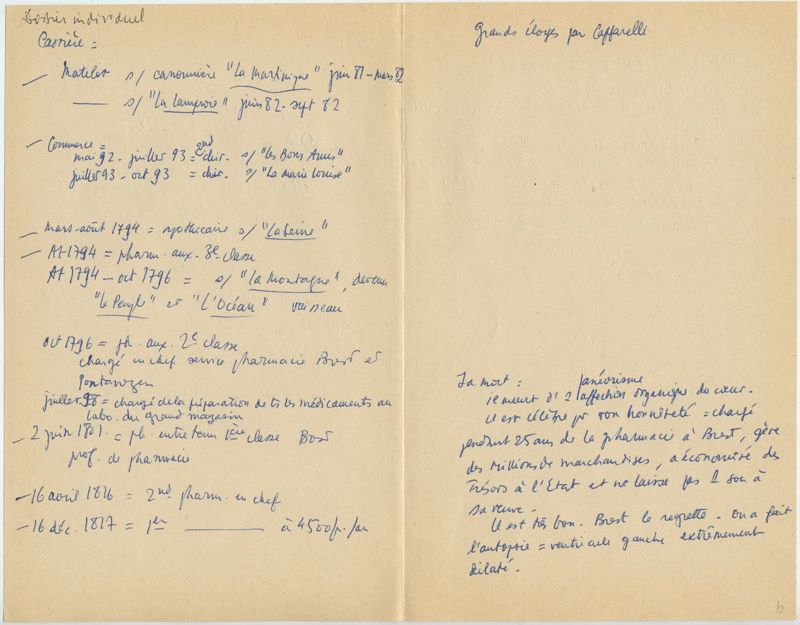 Dossier individuel
Carrière =
— Matelot s/ canonnière "La Martinique" juin 81 - mars 82
— s/ "La Lamproie" juin 82 - sept 82
— Commerce =
mai 92 - juillet 93 = 2nd chir. s/ "les Bons Amis"
juillet 93 - oct 93 = chir. s/ "La marie Louise"
— Mars-août 1794 = apothicaire s/ "La Seine"
— At 1794 = pharm. aux. 3e classe
At 1794 - oct 1796 = s/ "La Montagne", devenu
"le Peuple" et "L'Océan" vaisseau
oct 1796 = ph. aux. 2e classe
chargé en chef service pharmacie Brest et
Pontanezen
juillet 98 = chargé de la préparation de ts les médicaments au
Labo. du grand magasin
— 2 juin 1801. = ph. entretenu 1ère classe Brest
prof. de pharmacie
— 16 avril 1816 = 2nd pharm. en chef
— 16 déc. 1817 = 1er ——— à 4500 fr. /an
Grands éloges par Caffarelli
Sa mort :
il meurt d'1 affection organique du cœur.
anévrisme
il est célèbre pr son honnêteté = chargé
pendant 25 ans de la pharmacie à Brest, gère
des Millions de marchandises, a économisé des
Trésors à l'Etat et ne laisse pas 1 sou à
sa veuve.
Il est très bon. Brest le regrette. On a fait
l'autopsie = ventricule gauche extrêmement
dilaté.
6